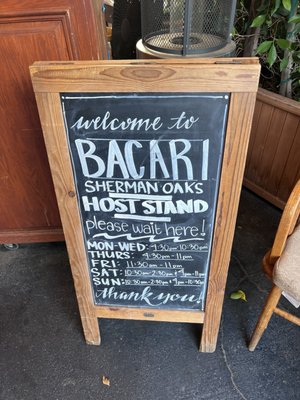 welcome to
BACARI
SHERMAN OAKS
HOST STAND
please wait here!
MON-WED: 4:30-10:30pm
THURS: 4:30-11pm
FRI: 11:30am-11pm
SAT: 10:30am-2:30pm & 4pm-11pm
SUN: 10:30am-2:30pm & 4pm-10:30pm
thank you!